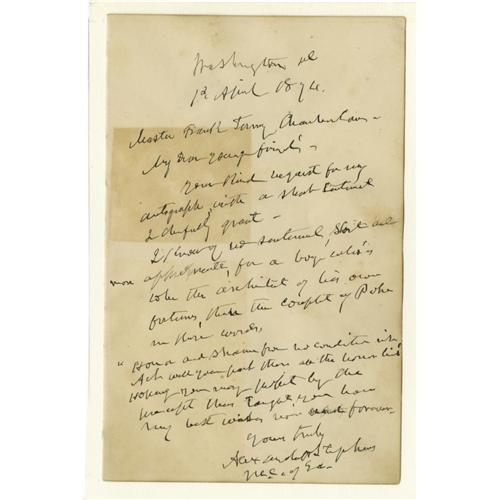 Washington
1st April 1874.
Master Frank Terry Chamberlain -
My Dear young friend -
Your kind request for my
autograph, with a short sentiment
I cheerfully grant -
I know of no sentiment, short and
more appropriate, for a boy who is
to be the architect of his own
fortunes, than the couplet of Pope
in these words,
"Honor and shame from no condition rise
Act well your part there all the honor lies
Hoping you may profit by the
precept thus taught you have
my best wishes now and forever -
Yours truly
Alexander H Stephens
of Ga -